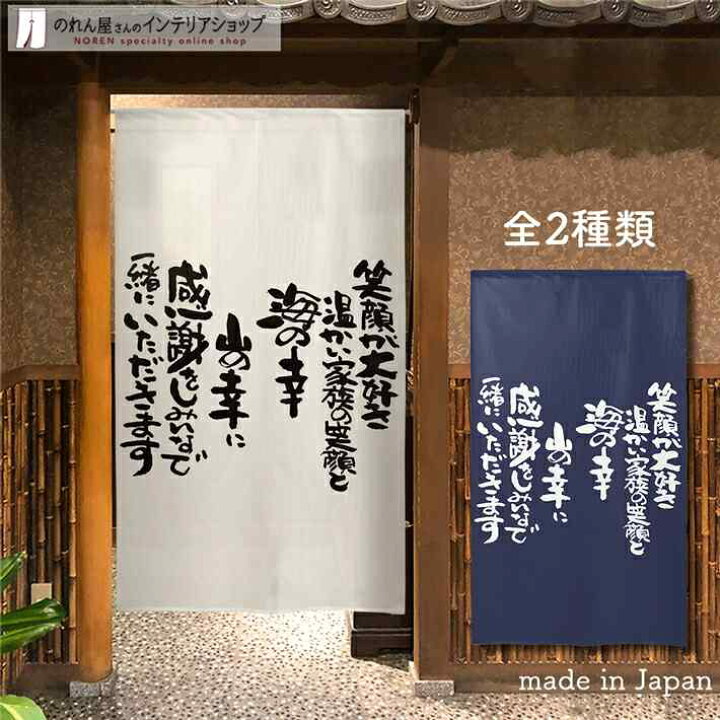 のれん屋さんのインテリアショップ
NOREN specialty online shop
笑顔が大好き
温かい家族の笑顔と
海の幸
山の幸に
感謝をしみんなで
一緒にいただきます
全2種類
笑顔が大好き
温かい家族の笑顔と
海の幸
山の幸に
感謝をしみんなで
一緒にいただきます
made in Japan